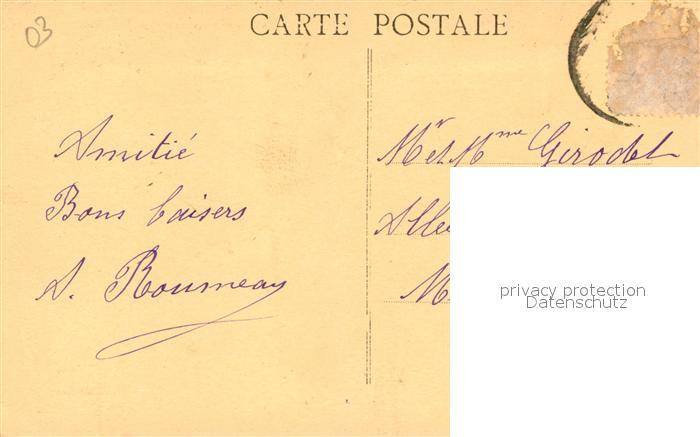 03
CARTE POSTALE
Amitié
Bons baisers
A. Roumeau
Mr et Mme Girodet
privacy protection
Datenschutz